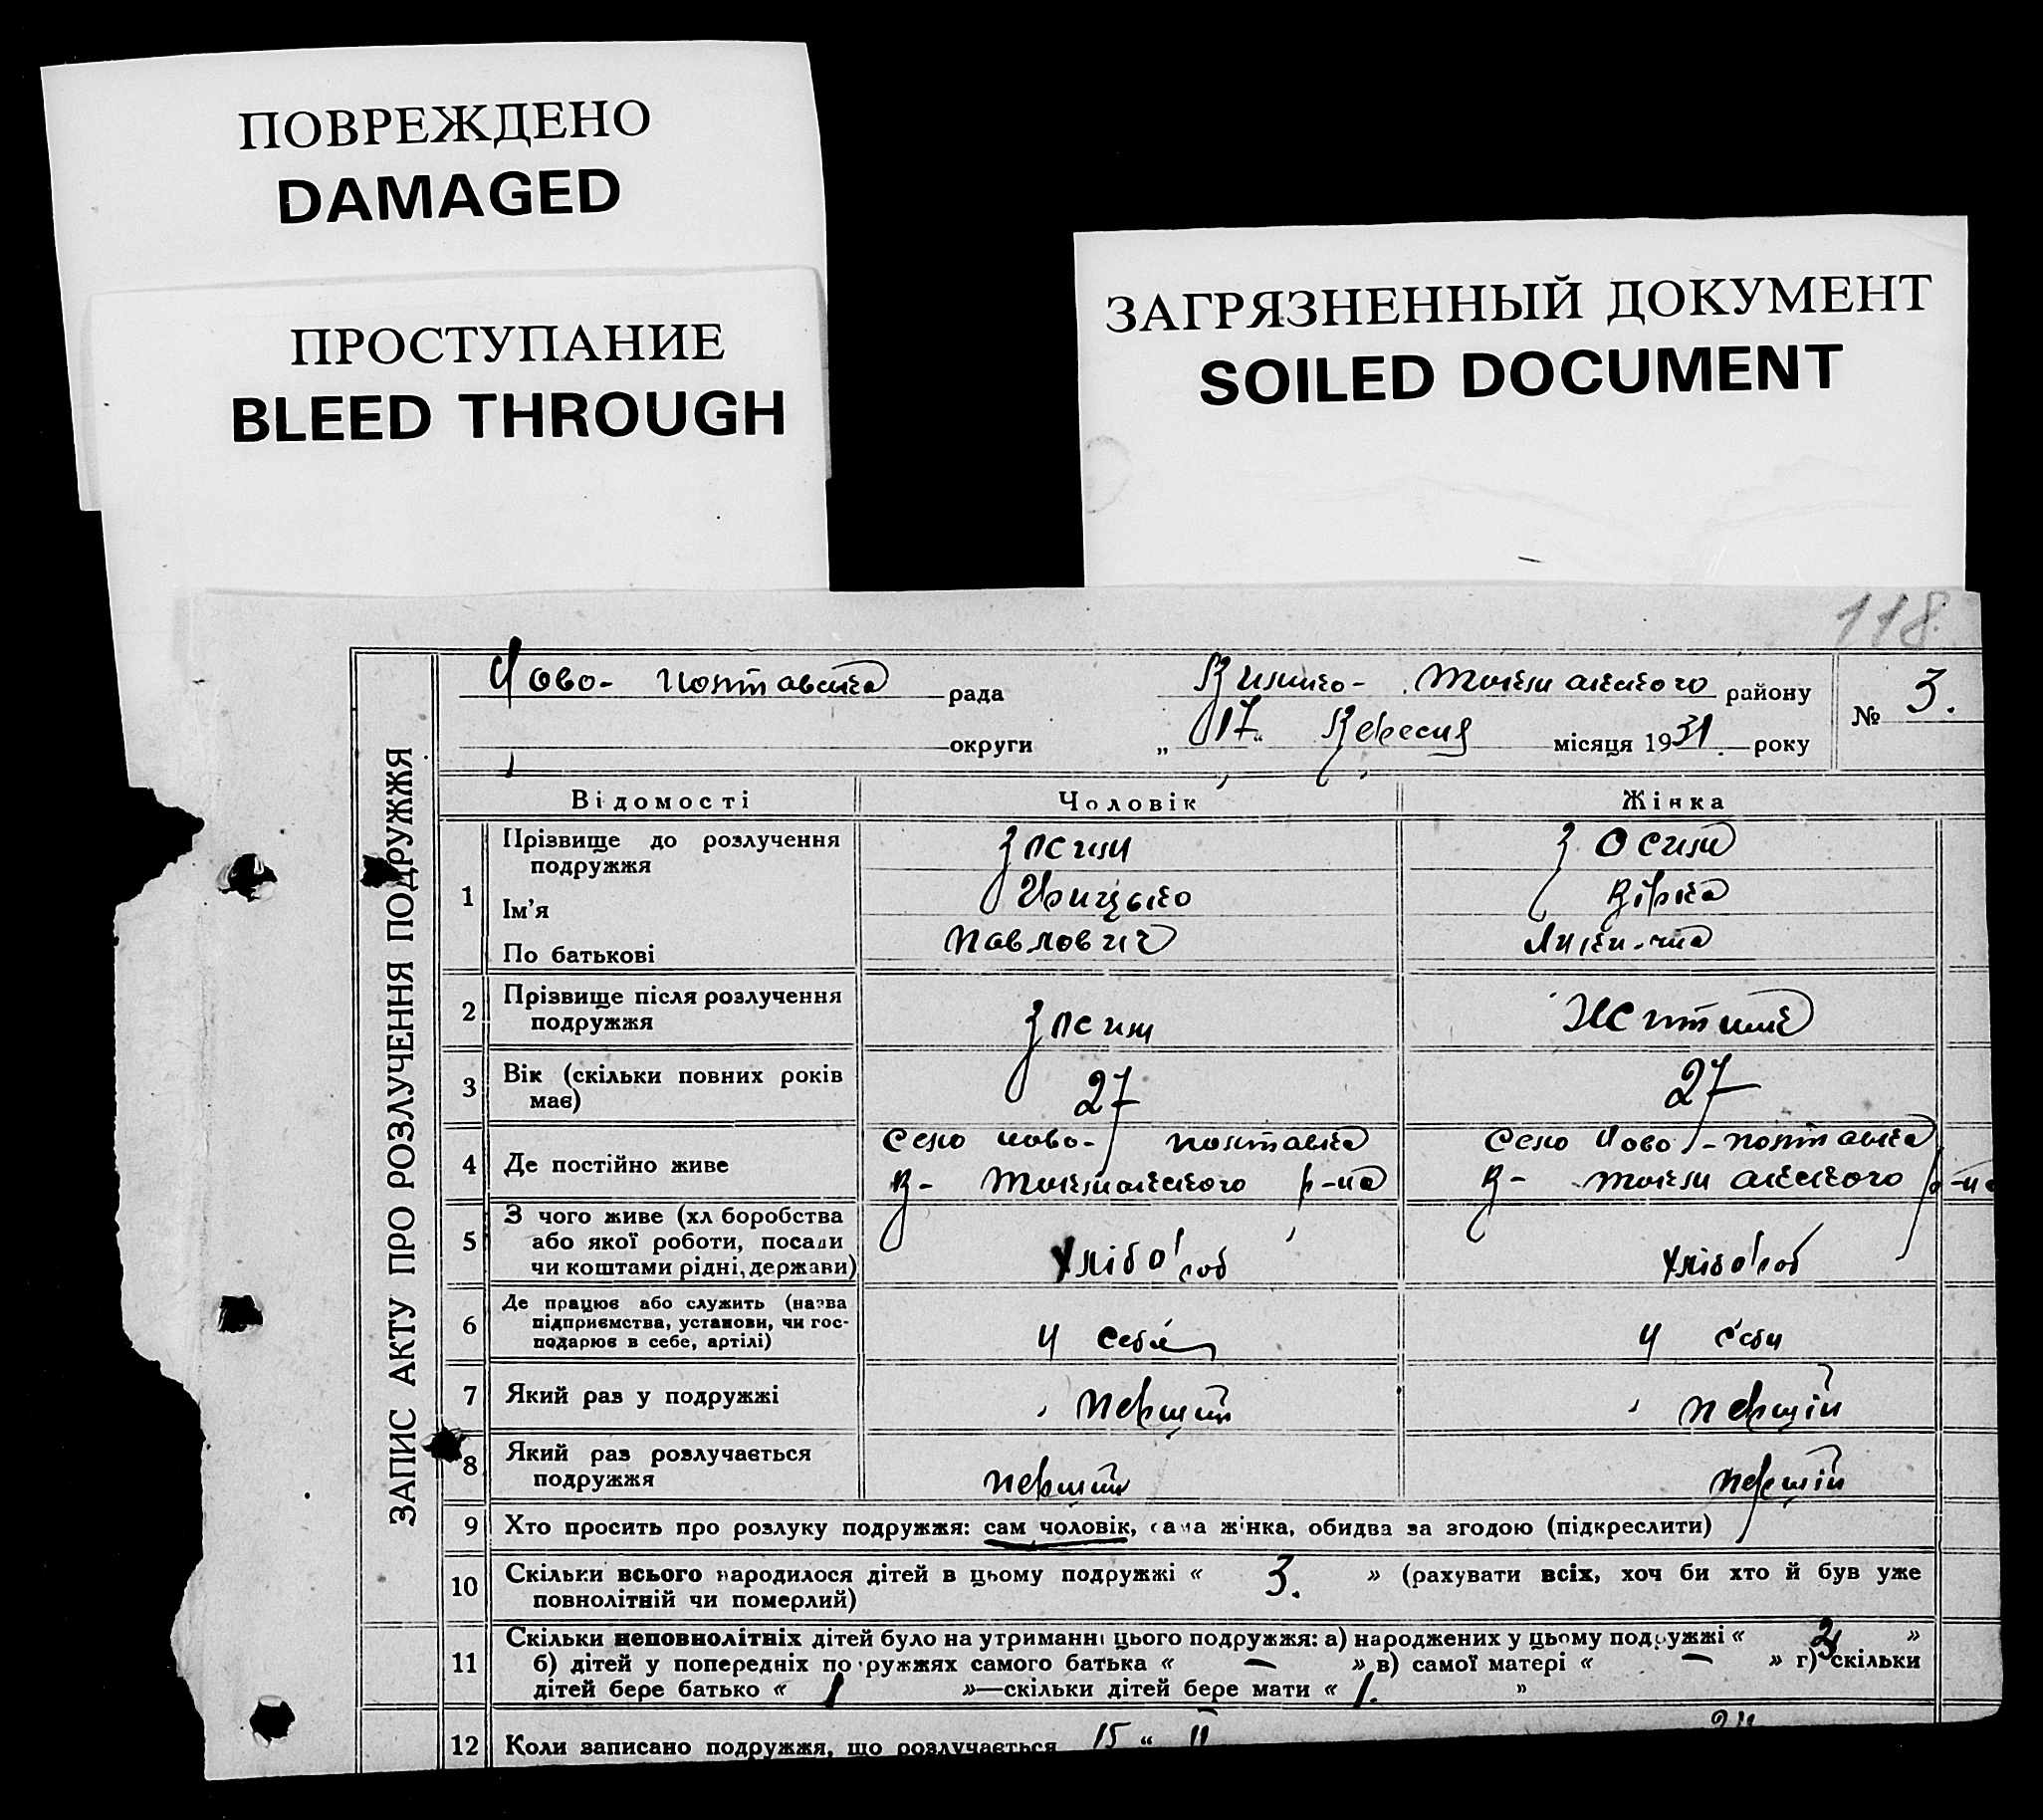 ПОВРЕЖДЕНО
DAMAGED
ПРОСТУПАНИЕ
BLEED THROUGH
ЗАГРЯЗНЕННЫЙ ДОКУМЕНТ
SOILED DOCUMENT
118
ЗАПИС АКТУ ПРО РОЗЛУЧЕННЯ ПОДРУЖЖЯ
Ново- полтавська рада токмакського району № 3.
округи „ 17 “ Вересня місяця 1931 року
Відомості Чоловік Жінка
1 Прізвище до розлучення
подружжя
Ім'я Грицько Вірка
По батькові Павлович
2 Прізвище після розлучення
подружжя
3 Вік (скільки повних років 27 27
має)
4 Де постійно живе Село Ново- полтавка Село Ново-полтавка
В- Токмакського р-на В- Токмакського р-на
5 З чого живе (хліборобства
або якої роботи, посади хлібороб хлібороб
чи коштами рідні, держави)
6 Де працює або служить (назва
підприємства, установи, чи гос- У себе У себи
подарює в себе, артілі)
7 Який раз у подружжі первий перший
8 Який раз розлучається
подружжя первий перший
9 Хто просить про розлуку подружжя: сам чоловік, сама жінка, обидва за згодою (підкреслити)
10 Скільки всього народилося дітей в цьому подружжі « 3. » (рахувати всіх, хоч би хто й був уже
повнолітній чи померлий)
11 Скільки неповнолітніх дітей було на утриманні цього подружжя: а) народжених у цьому подружжі « 2 »
б) дітей у попередніх подружжях самого батька « — » в) самої матері « — » г) скільки
дітей бере батько « 1 »—скільки дітей бере мати « 1. »
12 Коли записано подружжя, що розлучається 15 “ II